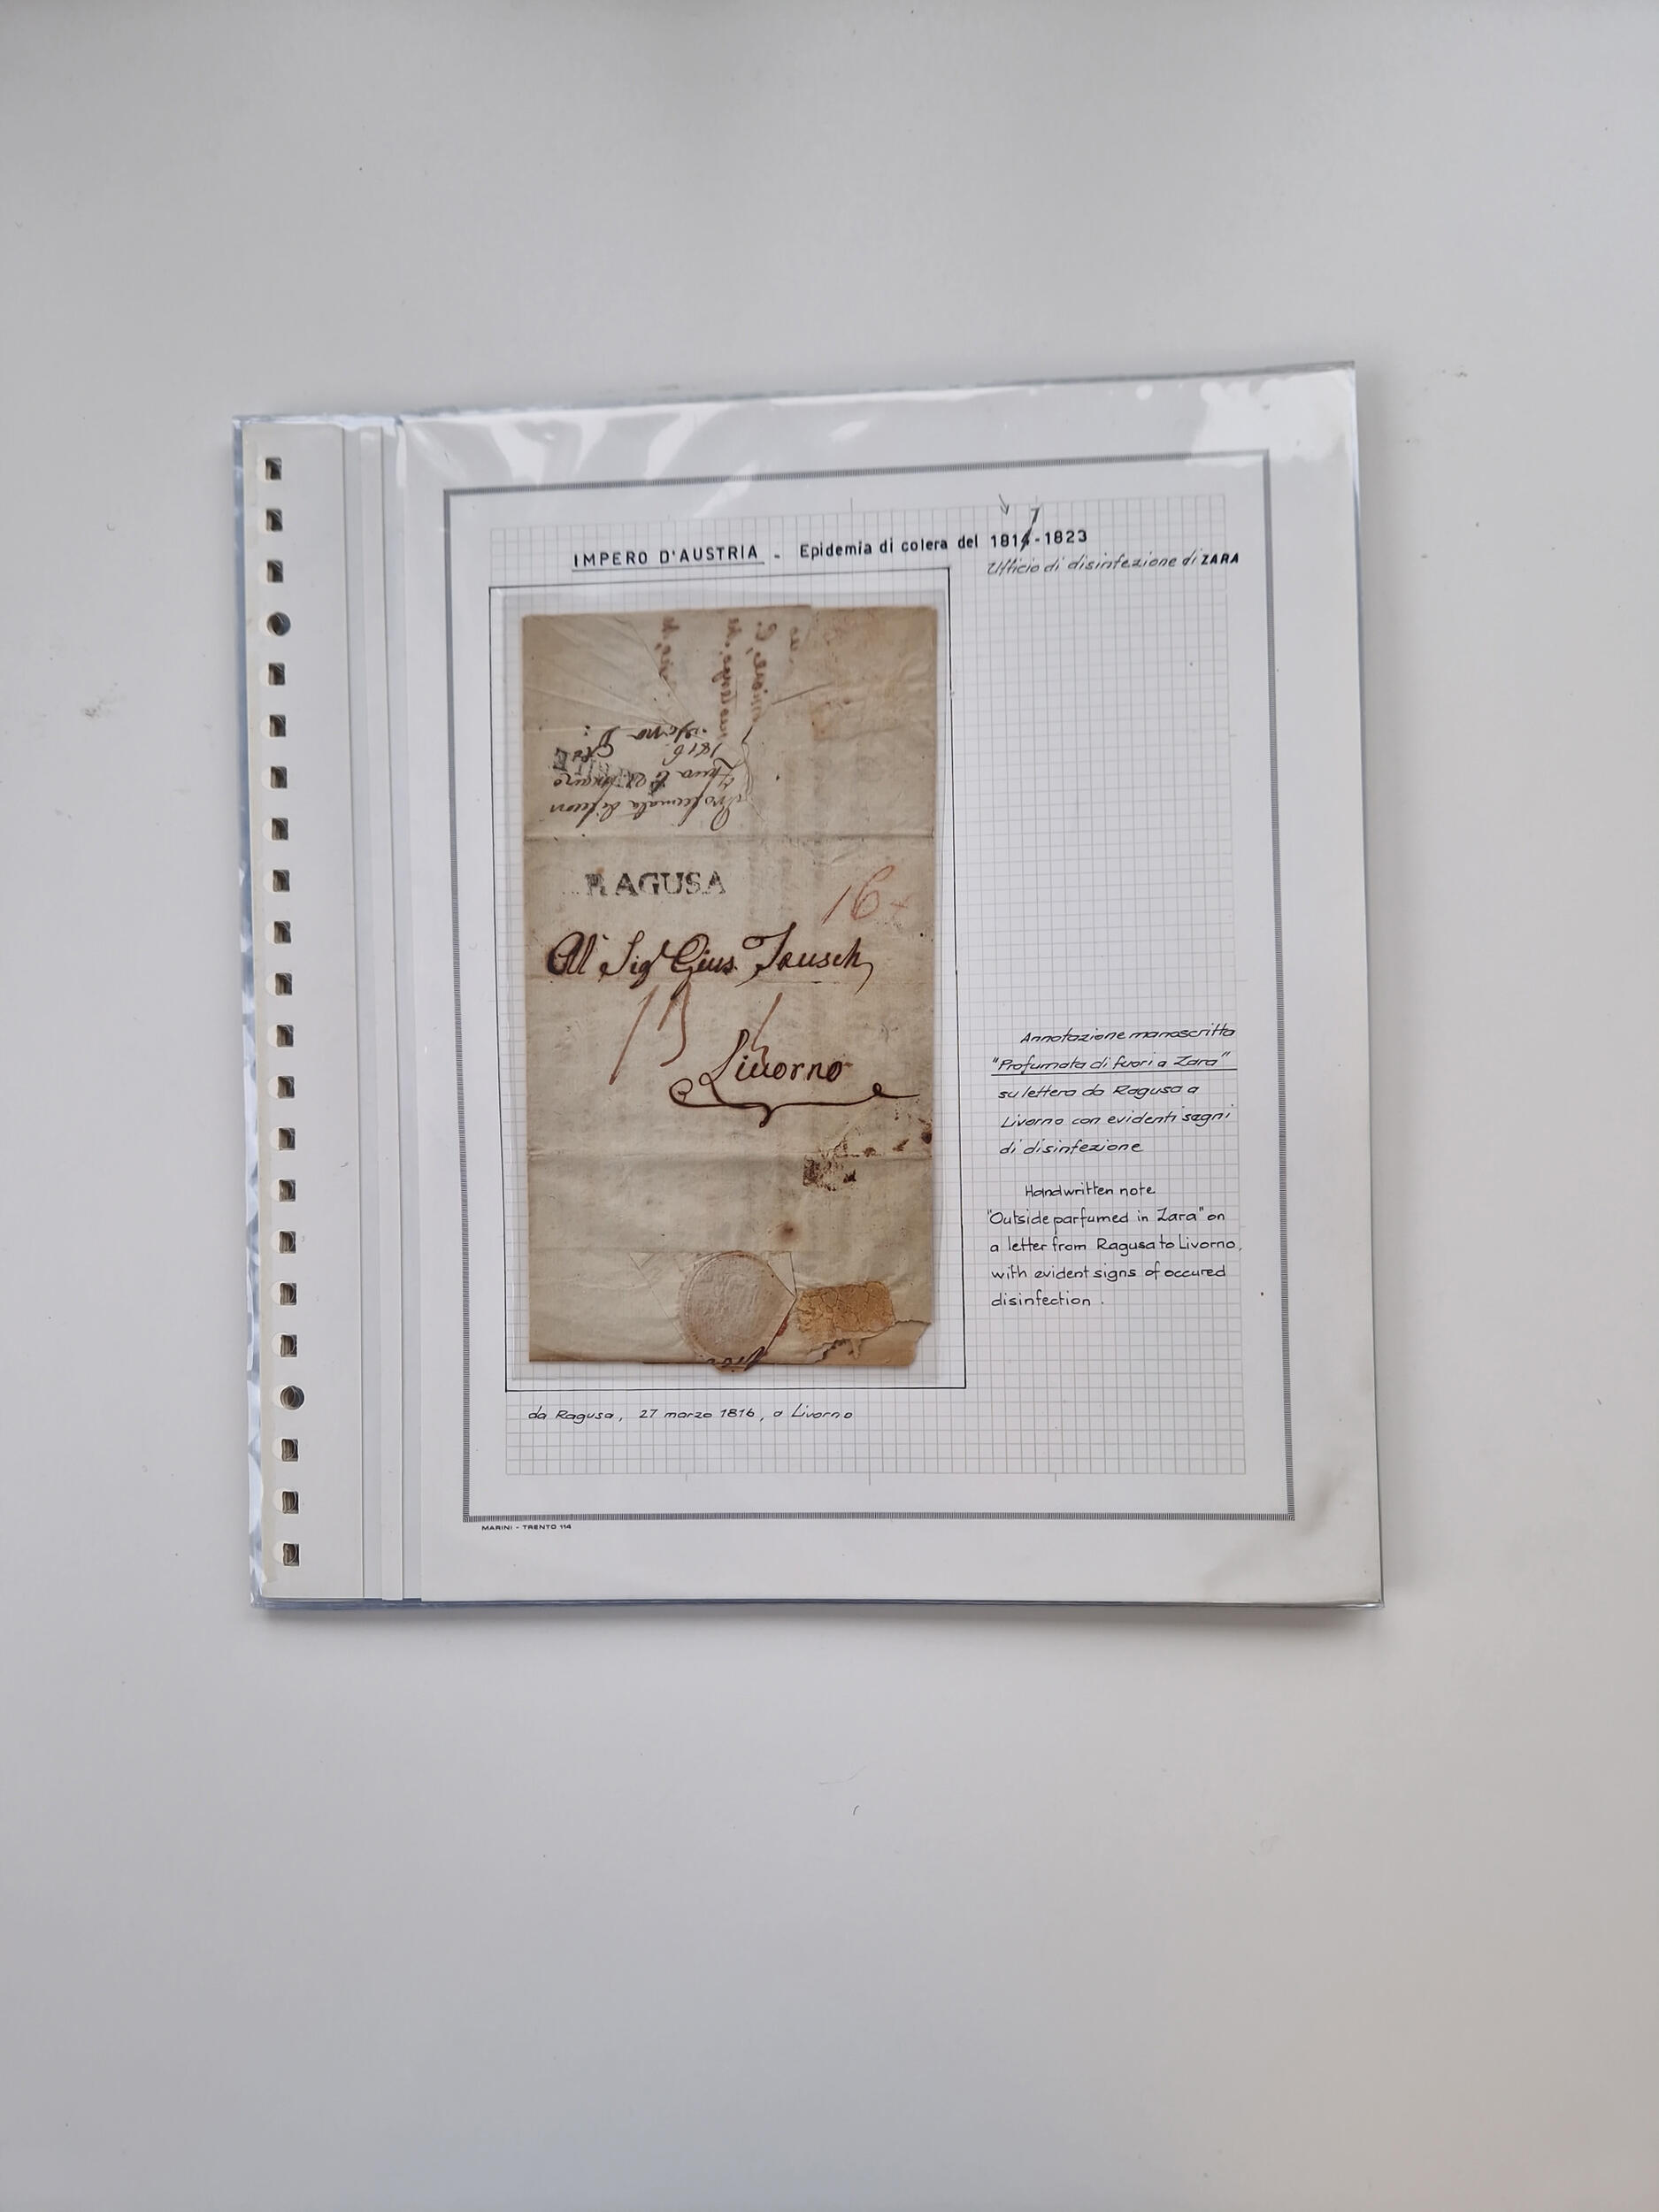 IMPERO D'AUSTRIA - Epidemia di colera del 1814-1823
7
Ufficio di disinfezione di ZARA
1816
RAGUSA
16
Al Sigr Gius. Tausch
Livorno
Annotazione manoscritta
"Profumata di fuori a Zara"
su lettera da Ragusa a
Livorno con evidenti segni
di disinfezione
Handwritten note
"Outside parfumed in Zara" on
a letter from Ragusa to Livorno,
with evident signs of occured
disinfection.
da Ragusa, 27 marzo 1816, a Livorno
MARINI - TRENTO 114